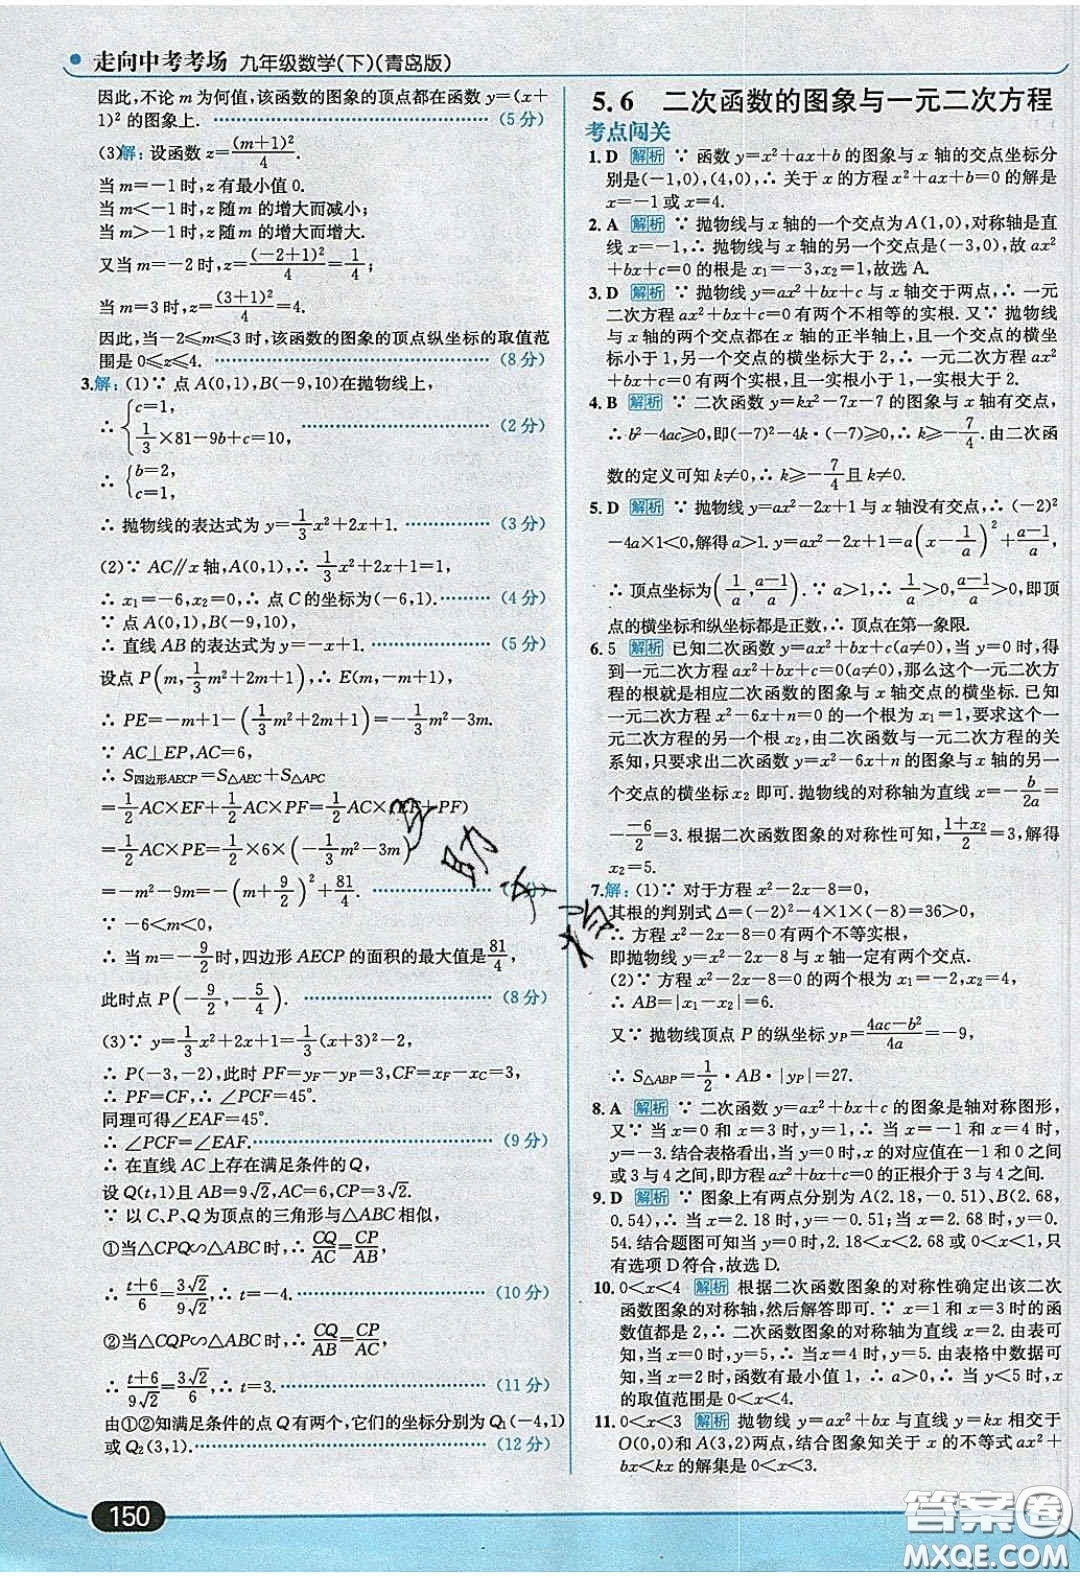 走向中考考场 九年级数学(下)(青岛版)
因此,不论 m 为何值,该函数的图象的顶点都在函数 y=(x+
1)² 的图象上. (5分)
(3)解:设函数 z=(m+1)²/4.
当 m=-1 时,z 有最小值 0.
当 m<-1 时,z 随 m 的增大而减小;
当 m>-1 时,z 随 m 的增大而增大.
又当 m=-2 时,z=(-2+1)²/4=1/4;
当 m=3 时,z=(3+1)²/4=4.
因此,当-2≤m≤3 时,该函数的图象的顶点纵坐标的取值范
围是 0≤z≤4. (8分)
3.解:(1)∵ 点 A(0,1),B(-9,10)在抛物线上,
∴ {c=1,
1/3×81-9b+c=10, (2分)
∴ {b=2,
c=1,
∴ 抛物线的表达式为 y=1/3x²+2x+1. (3分)
(2)∵ AC∥x 轴,A(0,1),∴ 1/3x²+2x+1=1,
∴ x₁=-6,x₂=0,∴ 点 C 的坐标为(-6,1). (4分)
∵ 点 A(0,1),B(-9,10),
∴ 直线 AB 的表达式为 y=-x+1. (5分)
设点 P(m,1/3m²+2m+1),∴ E(m,-m+1),
∴ PE=-m+1-(1/3m²+2m+1)=-1/3m²-3m.
∵ AC⊥EP,AC=6,
∴ S四边形AECP=S△AEC+S△APC
=1/2AC×EF+1/2AC×PF=1/2AC×(EF+PF)
=1/2AC×PE=1/2×6×(-1/3m²-3m)
=-m²-9m=-(m+9/2)²+81/4.
∵ -6<m<0,
∴ 当 m=-9/2时,四边形 AECP 的面积的最大值是81/4,
此时点 P(-9/2,-5/4). (8分)
(3)∵ y=1/3x²+2x+1=1/3(x+3)²-2,
∴ P(-3,-2),此时 PF=yF-yP=3,CF=xF-xC=3,
∴ PF=CF,∴ ∠PCF=45°.
同理可得∠EAF=45°.
∴ ∠PCF=∠EAF. (9分)
∴ 在直线 AC 上存在满足条件的 Q,
设 Q(t,1)且 AB=9√2,AC=6,CP=3√2.
∵ 以 C、P、Q 为顶点的三角形与△ABC 相似,
①当△CPQ∽△ABC 时,∴ CQ/AC=CP/AB,
∴ (t+6)/6=3√2/9√2,∴ t=-4. (10分)
②当△CQP∽△ABC 时,∴ CQ/AB=CP/AC,
∴ (t+6)/9√2=3√2/6,∴ t=3. (11分)
由①②知满足条件的点 Q 有两个,它们的坐标分别为 Q₁(-4,1)
或 Q₂(3,1). (12分)
150
5.6 二次函数的图象与一元二次方程
考点闯关
1.D 解析 ∵ 函数 y=x²+ax+b 的图象与 x 轴的交点坐标分
别是(-1,0),(4,0),∴ 关于 x 的方程 x²+ax+b=0 的解是
x=-1 或 x=4.
2.A 解析 ∵ 抛物线与 x 轴的一个交点为 A(1,0),对称轴是直
线 x=-1,∴ 抛物线与 x 轴的另一个交点是(-3,0),故 ax²
+bx+c=0 的根是 x₁=-3,x₂=1,故选 A.
3.D 解析 ∵ 抛物线 y=ax²+bx+c 与 x 轴交于两点,∴ 一元
二次方程 ax²+bx+c=0 有两个不相等的实根.又∵ 抛物线
与 x 轴的两个交点都在 x 轴的正半轴上,且一个交点的横坐
标小于 1,另一个交点的横坐标大于 2,∴ 一元二次方程 ax²
+bx+c=0 有两个实根,且一实根小于 1,一实根大于 2.
4.B 解析 ∵ 二次函数 y=kx²-7x-7 的图象与 x 轴有交点,
∴ b²-4ac≥0,即(-7)²-4k·(-7)≥0,∴ k≥-7/4.由二次函
数的定义可知 k≠0,∴ k≥-7/4且 k≠0.
5.D 解析 ∵ 抛物线 y=ax²-2x+1 与 x 轴没有交点,∴ (-2)²
-4a×1<0,解得 a>1.y=ax²-2x+1=a(x-1/a)²+(a-1)/a,
∴ 顶点坐标为(1/a,(a-1)/a).∵ a>1,∴ 1/a>0,(a-1)/a>0,即顶
点的横坐标和纵坐标都是正数,∴ 顶点在第一象限.
6.5 解析 已知二次函数 y=ax²+bx+c(a≠0),当 y=0 时,得
到一元二次方程 ax²+bx+c=0(a≠0),那么这个一元二次方
程的根就是相应二次函数的图象与 x 轴交点的横坐标.已知
一元二次方程 x²-6x+n=0 的一个根为 x₁=1,要求这个一
元二次方程的另一个根 x₂,由二次函数与一元二次方程的关
系知,只要求出二次函数 y=x²-6x+n 的图象与 x 轴的另一
个交点的横坐标 x₂ 即可.抛物线的对称轴为直线 x=-b/2a=
--6/2=3.根据二次函数图象的对称性可知,(1+x₂)/2=3,解得
x₂=5.
7.解:(1)∵ 对于方程 x²-2x-8=0,
其根的判别式 Δ=(-2)²-4×1×(-8)=36>0,
∴ 方程 x²-2x-8=0 有两个不等实根,
即抛物线 y=x²-2x-8 与 x 轴一定有两个交点.
(2)∵ 方程 x²-2x-8=0 的两个根为 x₁=-2,x₂=4,
∴ AB=|x₁-x₂|=6.
又∵ 抛物线顶点 P 的纵坐标 yP=(4ac-b²)/4a=-9,
∴ S△ABP=1/2·AB·|yP|=27.
8.A 解析 ∵ 二次函数 y=ax²+bx+c 的图象是轴对称图形,
又∵ 当 x=0 和 x=3 时,y=1,当 x=-1 和 x=4 时,
y=-3.结合表格看出,当 y=0 时,x 的对应值在-1 和 0 之间
或 3 与 4 之间,即方程 ax²+bx+c=0 的正根介于 3 与 4 之间.
9.D 解析 ∵ 图象上有两点分别为 A(2.18,-0.51)、B(2.68,
0.54),∴ 当 x=2.18 时,y=-0.51;当 x=2.68 时,y=0.
54.结合题图可知当 y=0 时,2.18<x<2.68,∴
只有选项 D 符合,故选 D.
10.0<x<4 解析 根据二次函数图象的对称性确定出该二次
函数图象的对称轴,然后解答即可.∵ x=1 和 x=3 时的函
数值都是 2,∴ 二次函数图象的对称轴为直线 x=2.由表可
知,当 x=0 时,y=5,∴ 当 x=4 时,y=5.由表格中数据可
知,当 x=2 时,函数有最小值 1,∴ a>0,∴ 当 y<5 时,x
的取值范围是 0<x<4.
11.0<x<3 解析 抛物线 y=ax²+bx 与直线 y=kx 相交于
O(0,0)和 A(3,2)两点,结合图象知关于 x 的不等式 ax²+
bx<kx 的解集是 0<x<3.
答案圈
MXQE.COM